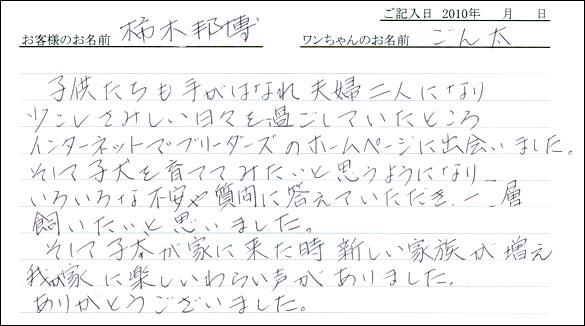 ご記入日 2010年 月 日
お客様のお名前 柿木邦博 ワンちゃんのお名前 ごん太
子供たちも手がはなれ夫婦二人になり
少しさみしい日々を過ごしていたところ
インターネットでブリーダーズのホームページに出会いました。
そして子犬を育ててみたいと思うようになり
いろいろな不安や質問に答えていただき、一層
飼いたいと思いました。
そして子犬が家に来た時新しい家族が増え
我が家に楽しいわらい声がありました。
ありがとうございました。